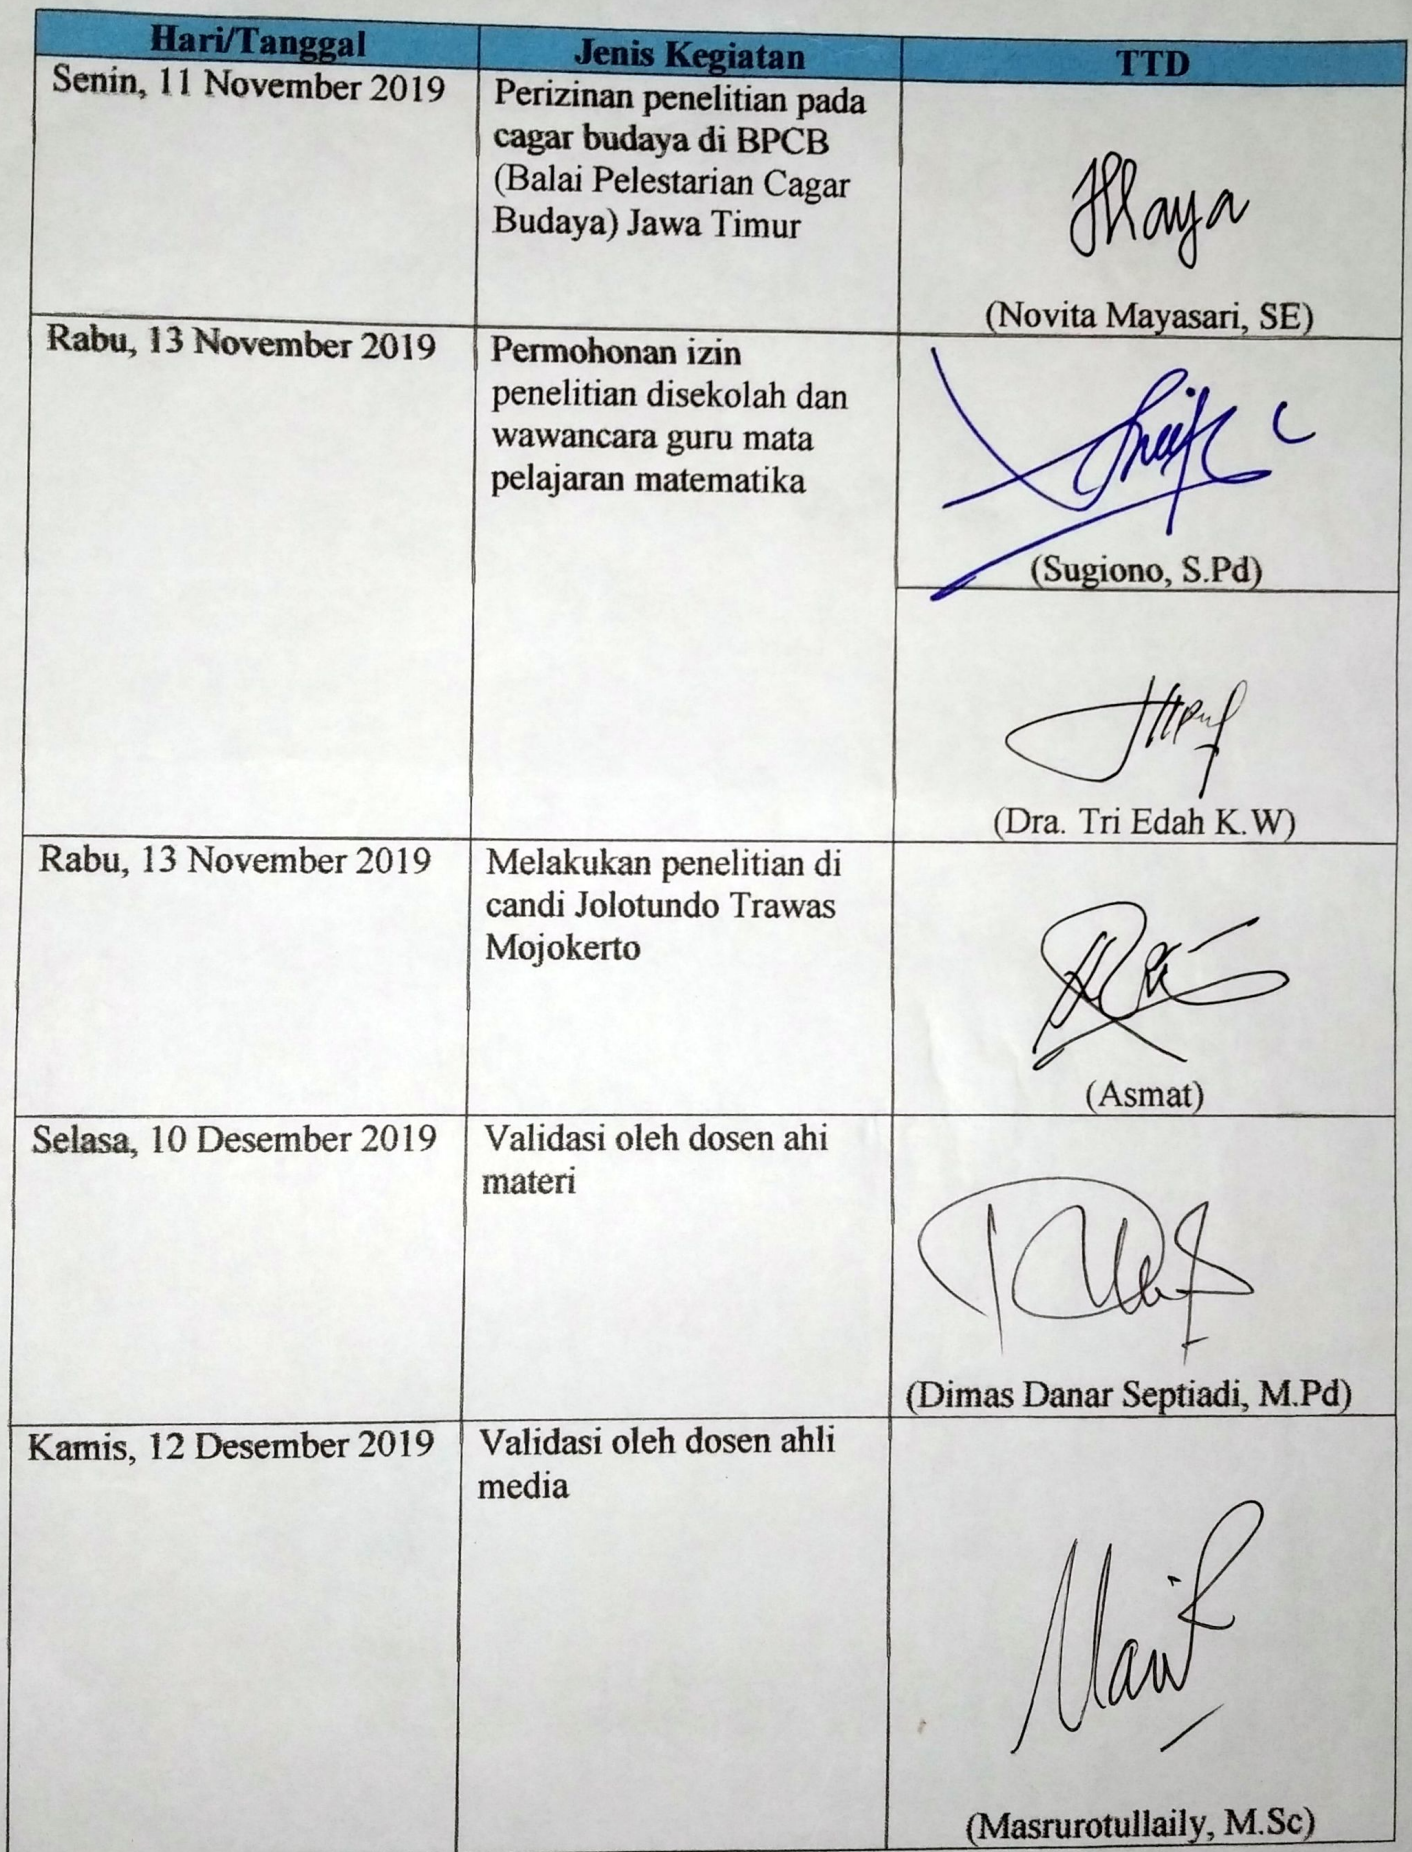 Hari/Tanggal
Jenis Kegiatan
TTD
Senin, 11 November 2019
Perizinan penelitian pada
cagar budaya di BPCB
(Balai Pelestarian Cagar
Budaya) Jawa Timur
(Novita Mayasari, SE)
Rabu, 13 November 2019
Permohonan izin
penelitian disekolah dan
wawancara guru mata
pelajaran matematika
(Sugiono, S.Pd)
(Dra. Tri Edah K.W)
Rabu, 13 November 2019
Melakukan penelitian di
candi Jolotundo Trawas
Mojokerto
(Asmat)
Selasa, 10 Desember 2019
Validasi oleh dosen ahi
materi
(Dimas Danar Septiadi, M.Pd)
Kamis, 12 Desember 2019
Validasi oleh dosen ahli
media
(Masrurotullaily, M.Sc)